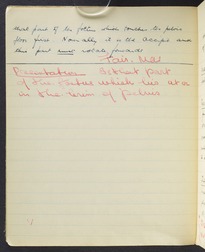 that part of the foetus which touches the pelvic
floor first. Normally is the Occiput and
that part must rotate forwards
Presentation Is that part
of the foetus which lies at or
in the brim of Pelvis